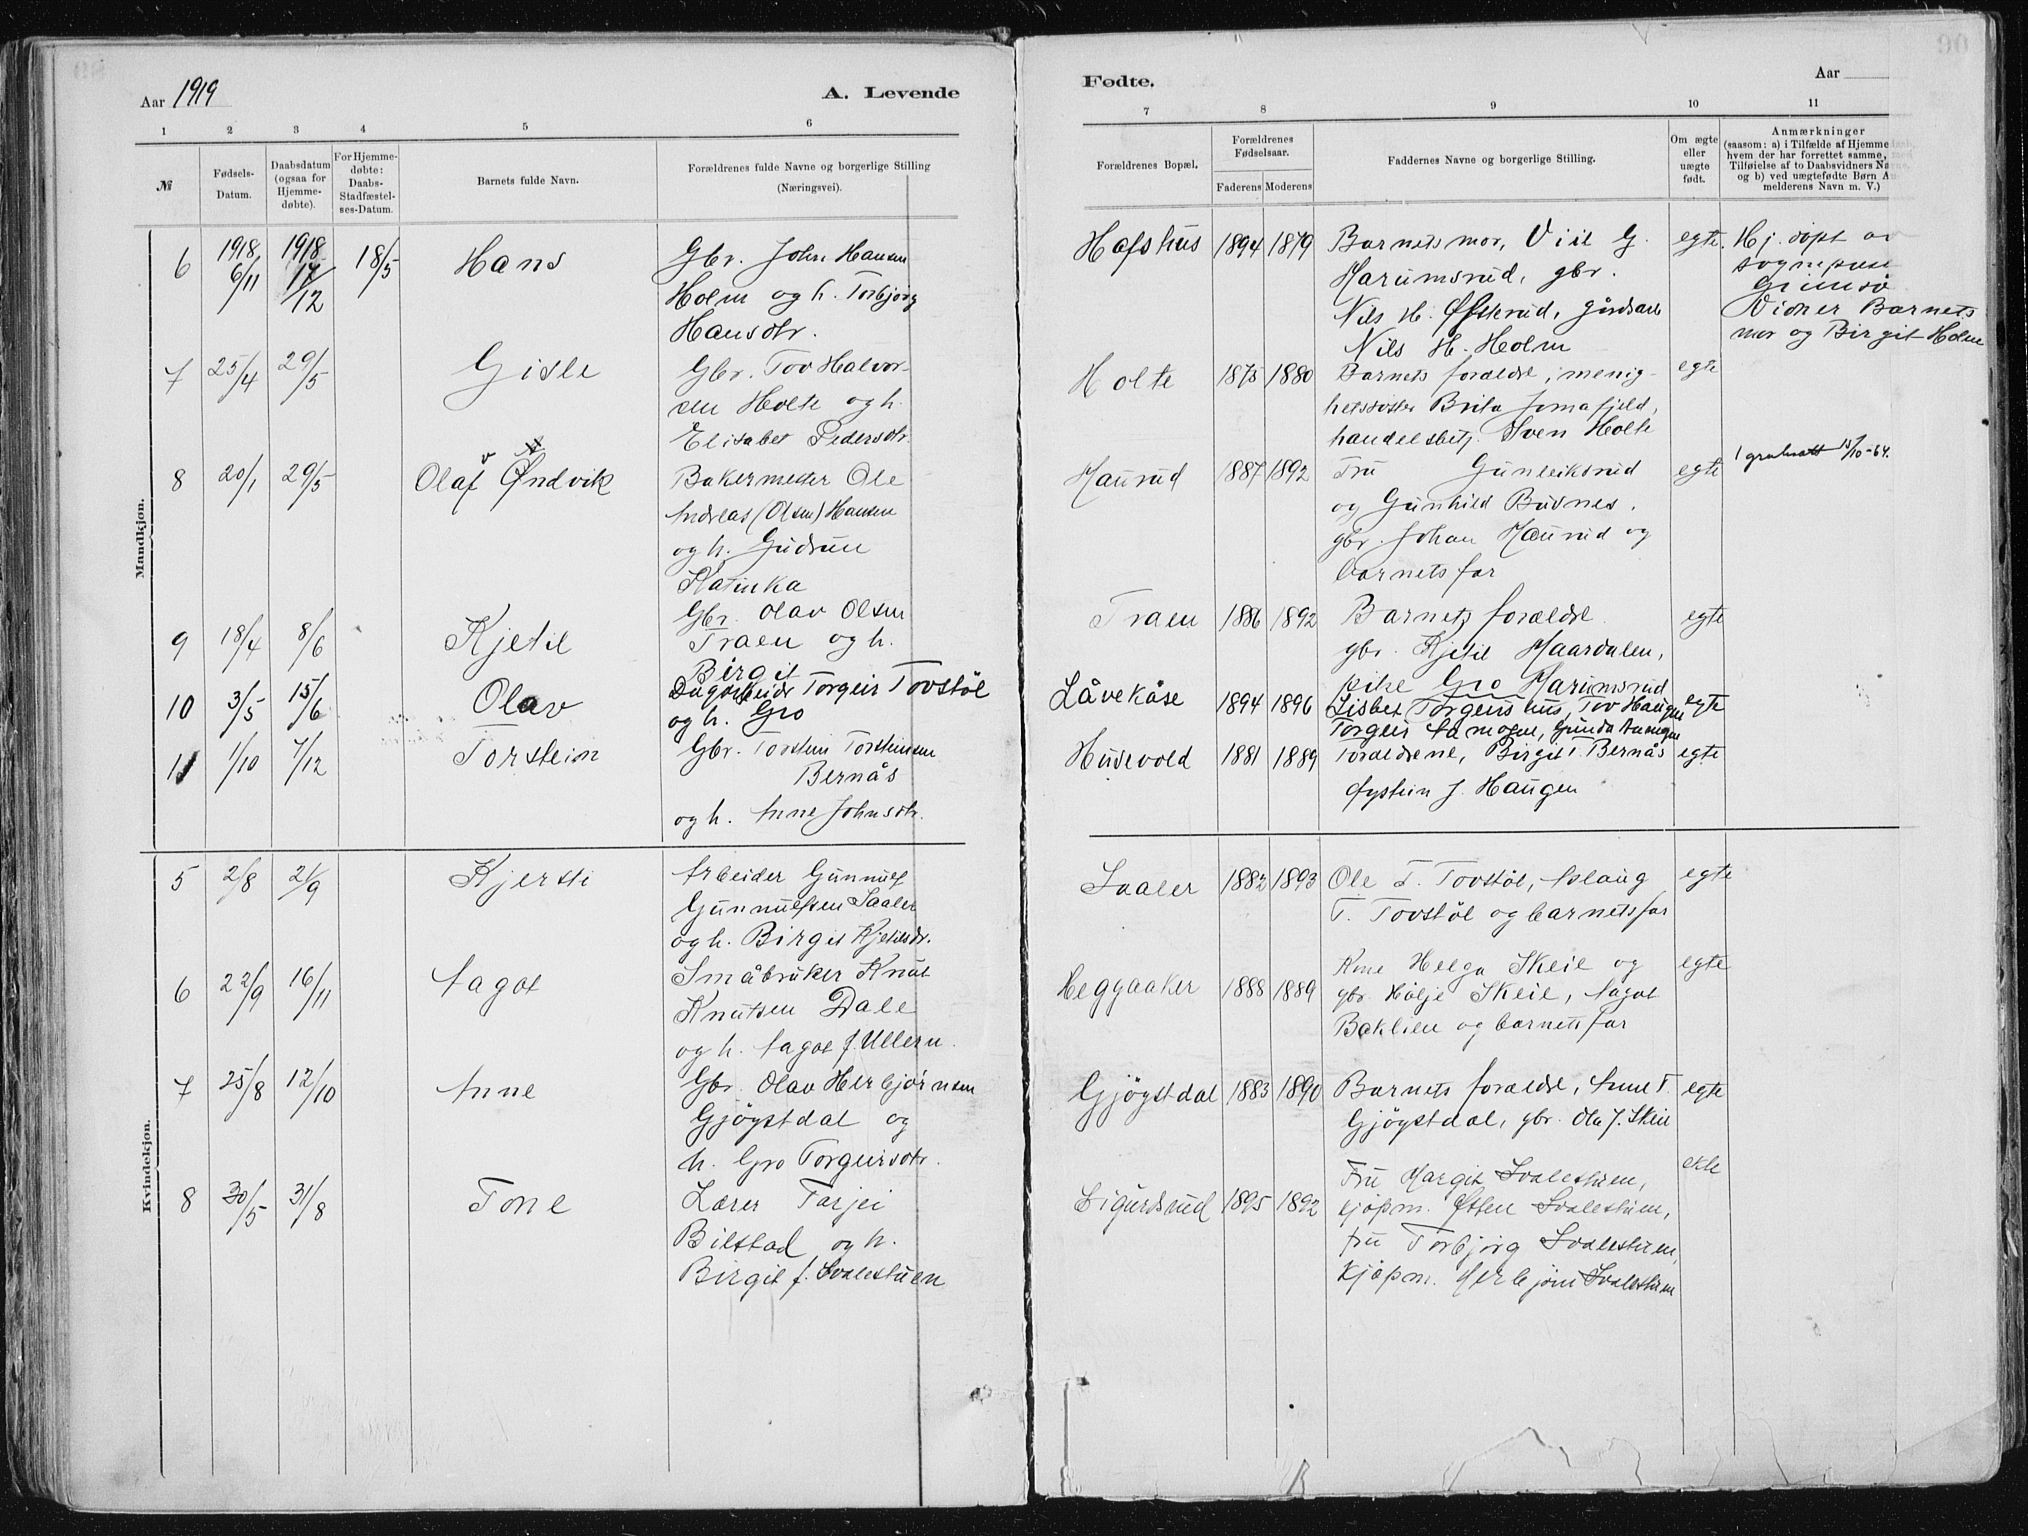 Aar 1919
A. Levende
1 2 3 4 5 6
№
Fødsels-
Datum.
Daabsdatum
(ogsaa for
Hjemme-
døbte).
For Hjemme-
døbte:
Daabs-
Stadfæstel-
ses-Datum.
Barnets fulde Navn.
Forældrenes fulde Navne og borgerlige Stilling
(Næringsvei).
Mandkjøn.
6 1918 6/11 1918 17/12 18/5 Hans Gbr. John Hansen
Holm og h. Torbjørg
Hansdtr.
7 25/4 29/5 Gisle Gbr. Tov Halvor-
sen Holte og h.
Elisabet Pedersdtr.
8 20/1 29/5 Olaf Øndvik Bakermester Ole
Andreas (Olsen) Hansen
og h. Gudrun
Katinka
9 18/4 8/6 Kjetil Gbr. Olav Olsen
Traen og h.
Birgit
10 3/5 15/6 Olav Dagarbeider Torgeir Tovstöl
og h. Gro
11 1/10 7/12 Torstein Gbr. Torstein Torsteinsen
Bernås
og h. Anne Johnsdtr.
Kvindekjøn.
5 2/8 21/9 Kjersti Arbeider Gunnulf
Gunnulfsen Saaler
og h. Birgit Kjetilsdr.
6 22/9 16/11 Aagot Småbruker Knut
Knutsen Dale
og h. Aagot f. Ullern.
7 25/8 12/10 Anne Gbr. Olav Herbjörnsen
Gjögstdal og
h. Gro Torgeirsdtr.
8 30/5 31/8 Tone Lærer Tarjei
Bilstad og h.
Birgit f. Svalestuen
Fødte.
Aar
7 8 9 10 11
Forældrenes Bopæl.
Forældrenes
Fødselsaar.
Faderens Moderens
Faddernes Navne og borgerlige Stilling.
Om ægte
eller
uægte
født.
Anmærkninger
(saasom: a) i Tilfælde af Hjemme
hvem der har forrettet samme,
Tilføielse af to Daabsvidners
og b) ved uægtefødte Børn
melderens Navn m. V.)
Hafshus 1894 1879 Barnets mor, G. egte. Hj. döpt av
Marumsrud, gbr. sogneprest
Nils H. Øfskrud, Grimsö
Nils H. Holm Vidner Barnets
mor og Birgit Holm
Holte 1875 1880 Barnets forældre, menig- egte
hetssöster Brita Jomafjeld,
handelsbetj. Sven Holte
Haurud 1887 1892 Fru Gunleiksrud egte 15/10-64.
og Gunhild Buvnes,
gbr. Johan Haurud og
barnets far
Traen 1886 1892 Barnets forældre egte
gbr. Kjetil Maardalen,
pike Gro Marumsrud
Låvekåse 1894 1896 Lisbet Torgeirshus, Tov Haugen egte
Torgeir
Husevold 1881 1889 Forældrene, Birgit T. Bernås egte
Øystein J. Haugen
Saaler 1882 1893 Ole T. Tovstöl, Aslaug egte
T. Tovstöl og barnets far
Heggaaker 1888 1889 Kone Helga Skeie og egte
gbr. Hölje Skeie, Aagot
Baklien og barnets far
Gjögstdal 1883 1890 Barnets forældre, Anne T. egte
Gjögstdal, gbr. Ola J. Skeie
Sigurdsrud 1895 1892 Fru Margit Svalestuen, ekte
kjöpm. Øften Svalestuen,
fru Torbjörg Svalestuen,
kjöpm. Herbjörn Svalestuen